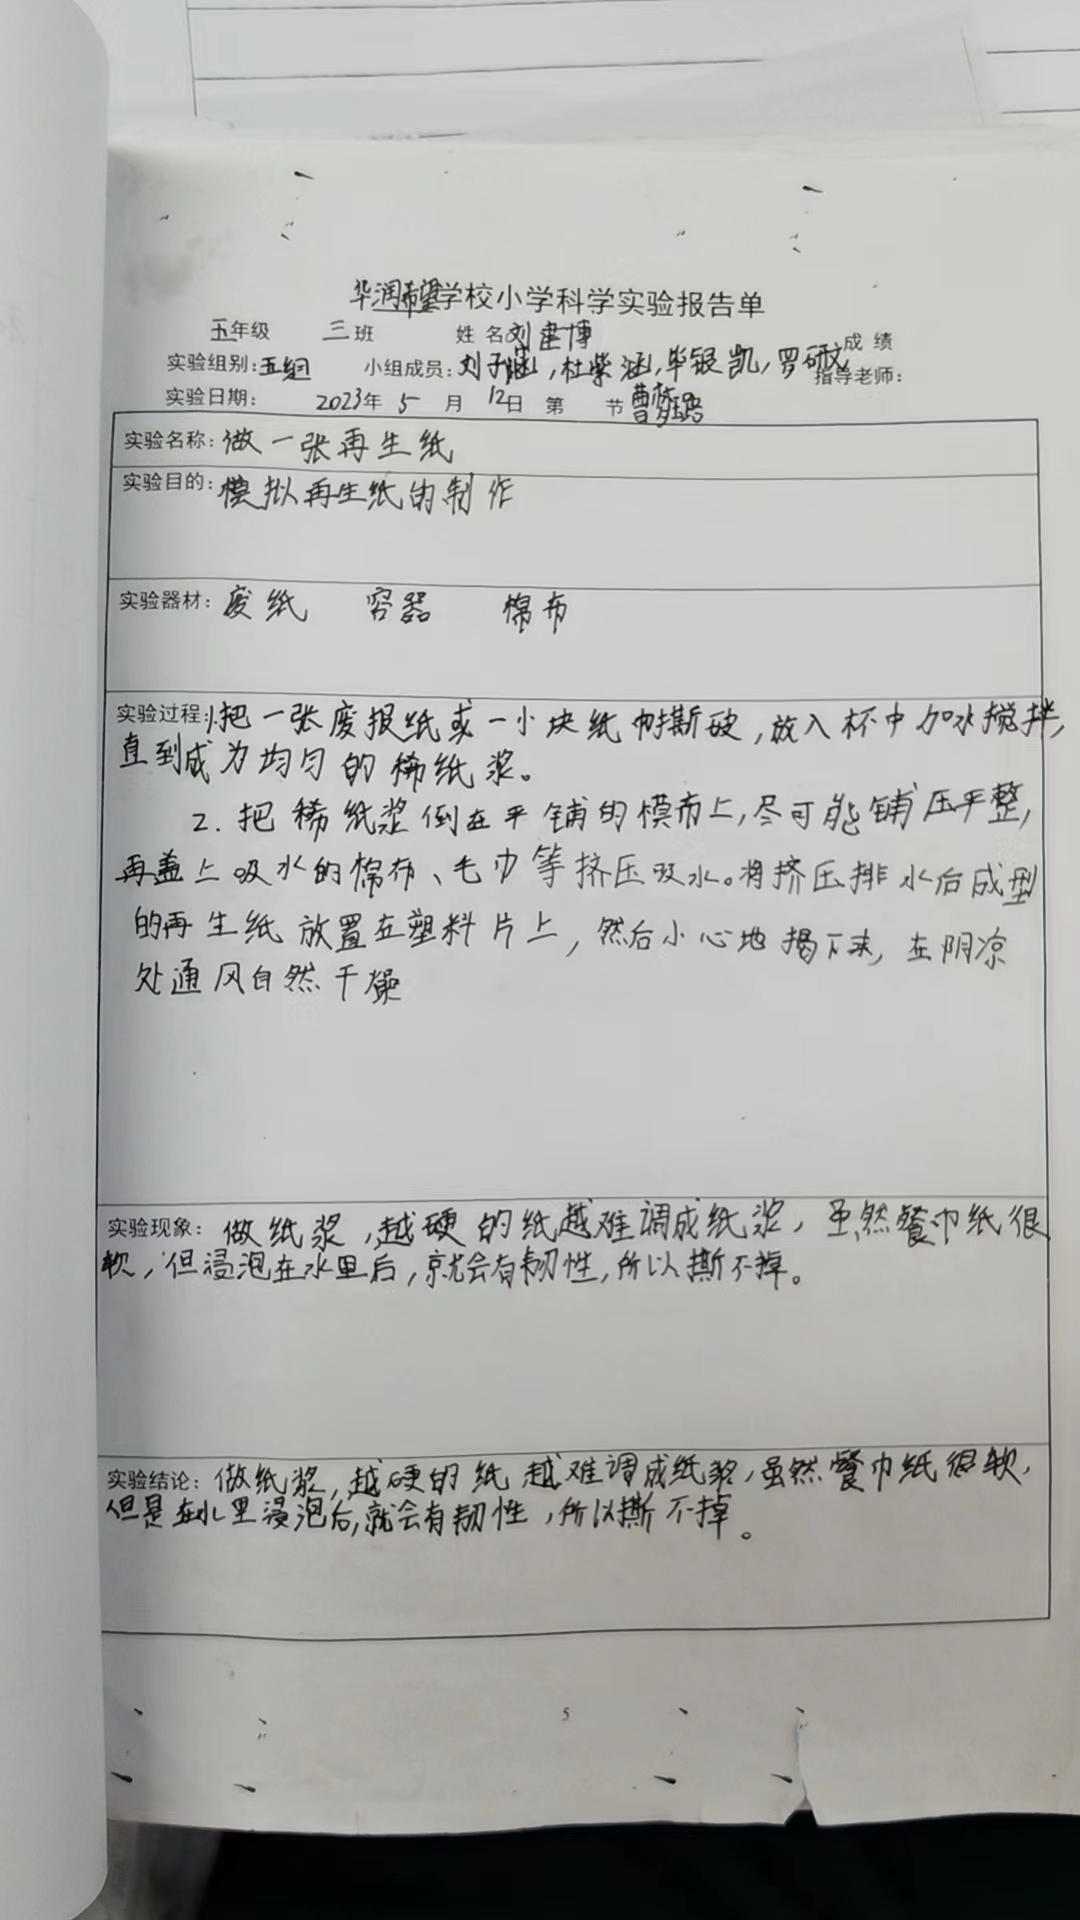 华润希望学校小学科学实验报告单
五年级 三班 姓名刘建博 成绩
实验组别:五组 小组成员:刘子涵,杜紫涵,毕银凯,罗研文 指导老师:
实验日期: 2023年5月12日 第 节 曹
实验名称:做一张再生纸
实验目的:模拟再生纸的制作
实验器材:废纸 容器 棉布
实验过程:1.把一张废报纸或一小块纸巾撕破,放入杯中加水搅拌,
直到成为均匀的稀纸浆。
2.把稀纸浆倒在平铺的模布上,尽可能铺压平整,
再盖上吸水的棉布、毛巾等挤压吸水。将挤压排水后成型
的再生纸放置在塑料片上,然后小心地揭下来,在阴凉
处通风自然干燥
实验现象:做纸浆,越硬的纸越难调成纸浆,虽然餐巾纸很
软,但浸泡在水里后,就会有韧性,所以撕不掉。
实验结论:做纸浆,越硬的纸越难调成纸浆,虽然餐巾纸很软,
但是在水里浸泡后,就会有韧性,所以撕不掉。
5